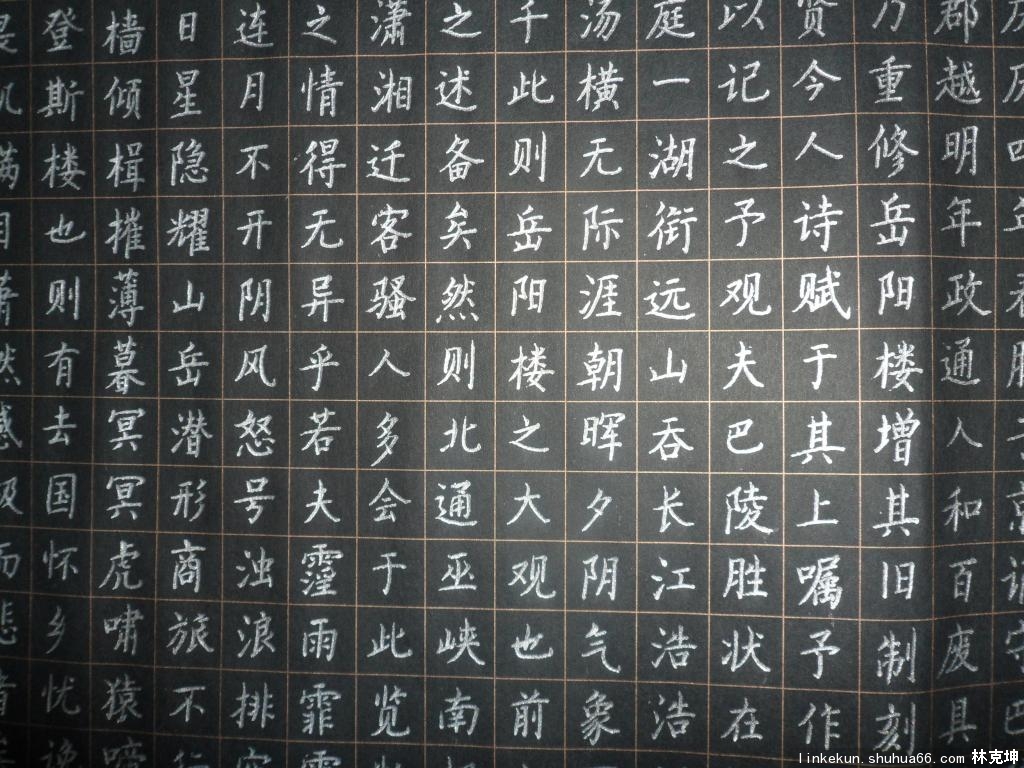 庆历四年春滕子京谪守巴
郡越明年政通人和百废具
乃重修岳阳楼增其旧制刻
贤今人诗赋于其上嘱予作
以记之予观夫巴陵胜状在
庭一湖衔远山吞长江浩浩
汤横无际涯朝晖夕阴气象
千此则岳阳楼之大观也前
之述备矣然则北通巫峡南
潇湘迁客骚人多会于此览
之情得无异乎若夫霪雨霏
连月不开阴风怒号浊浪排空
日星隐耀山岳潜形商旅不行
樯倾楫摧薄暮冥冥虎啸猿啼
登斯楼也则有去国怀乡忧谗
满目萧然感极而悲者
linkekun.shuhua66.com 林克坤